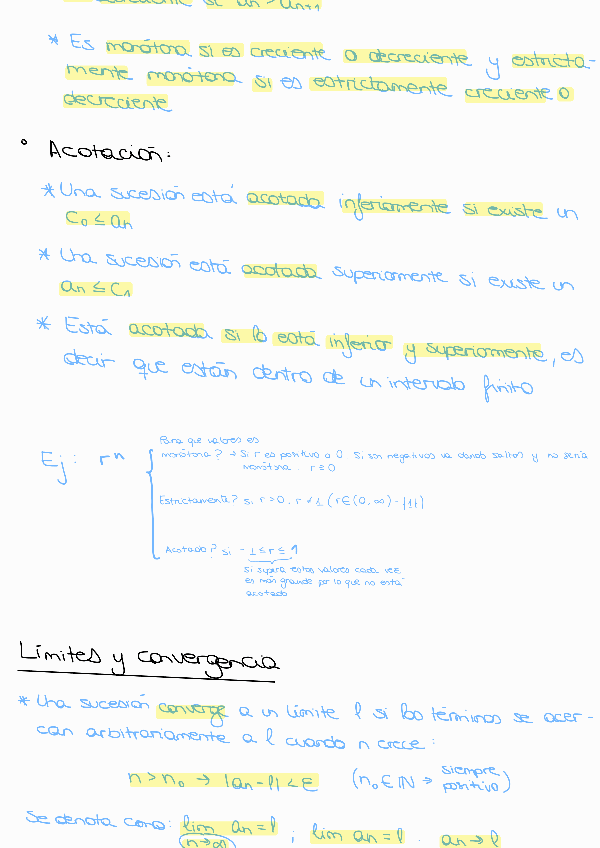 si an > an+1
* Es monótona si es creciente o decreciente y estricta-
mente monótona si es estrictamente creciente o
decreciente
° Acotación:
* Una sucesión está acotada inferiormente si existe un
C₀ ≤ an
* Una sucesión está acotada superiormente si existe un
an ≤ C₁
* Está acotada si lo está inferior y superiormente, es
decir que están dentro de un intervalo finito
Ej: rⁿ
Para que valores es
monótona? → Si r es positivo o 0 si son negativos va dando saltos y no sería
monótona. r ≥ 0
Estrictamente? si r > 0, r ≠ 1 (r ∈ (0, ∞) - {1})
Acotado? si -1 ≤ r ≤ 1
si supera estos valores cada vez
es más grande por lo que no está
acotado
Límites y convergencia
* Una sucesión converge a un límite l si los términos se acer-
can arbitrariamente a l cuando n crece:
n > n₀ → |an - l| < ε (n₀ ∈ ℕ → siempre
positivo)
Se denota como: lim an = l ; lim an = l . an → l
n→∞